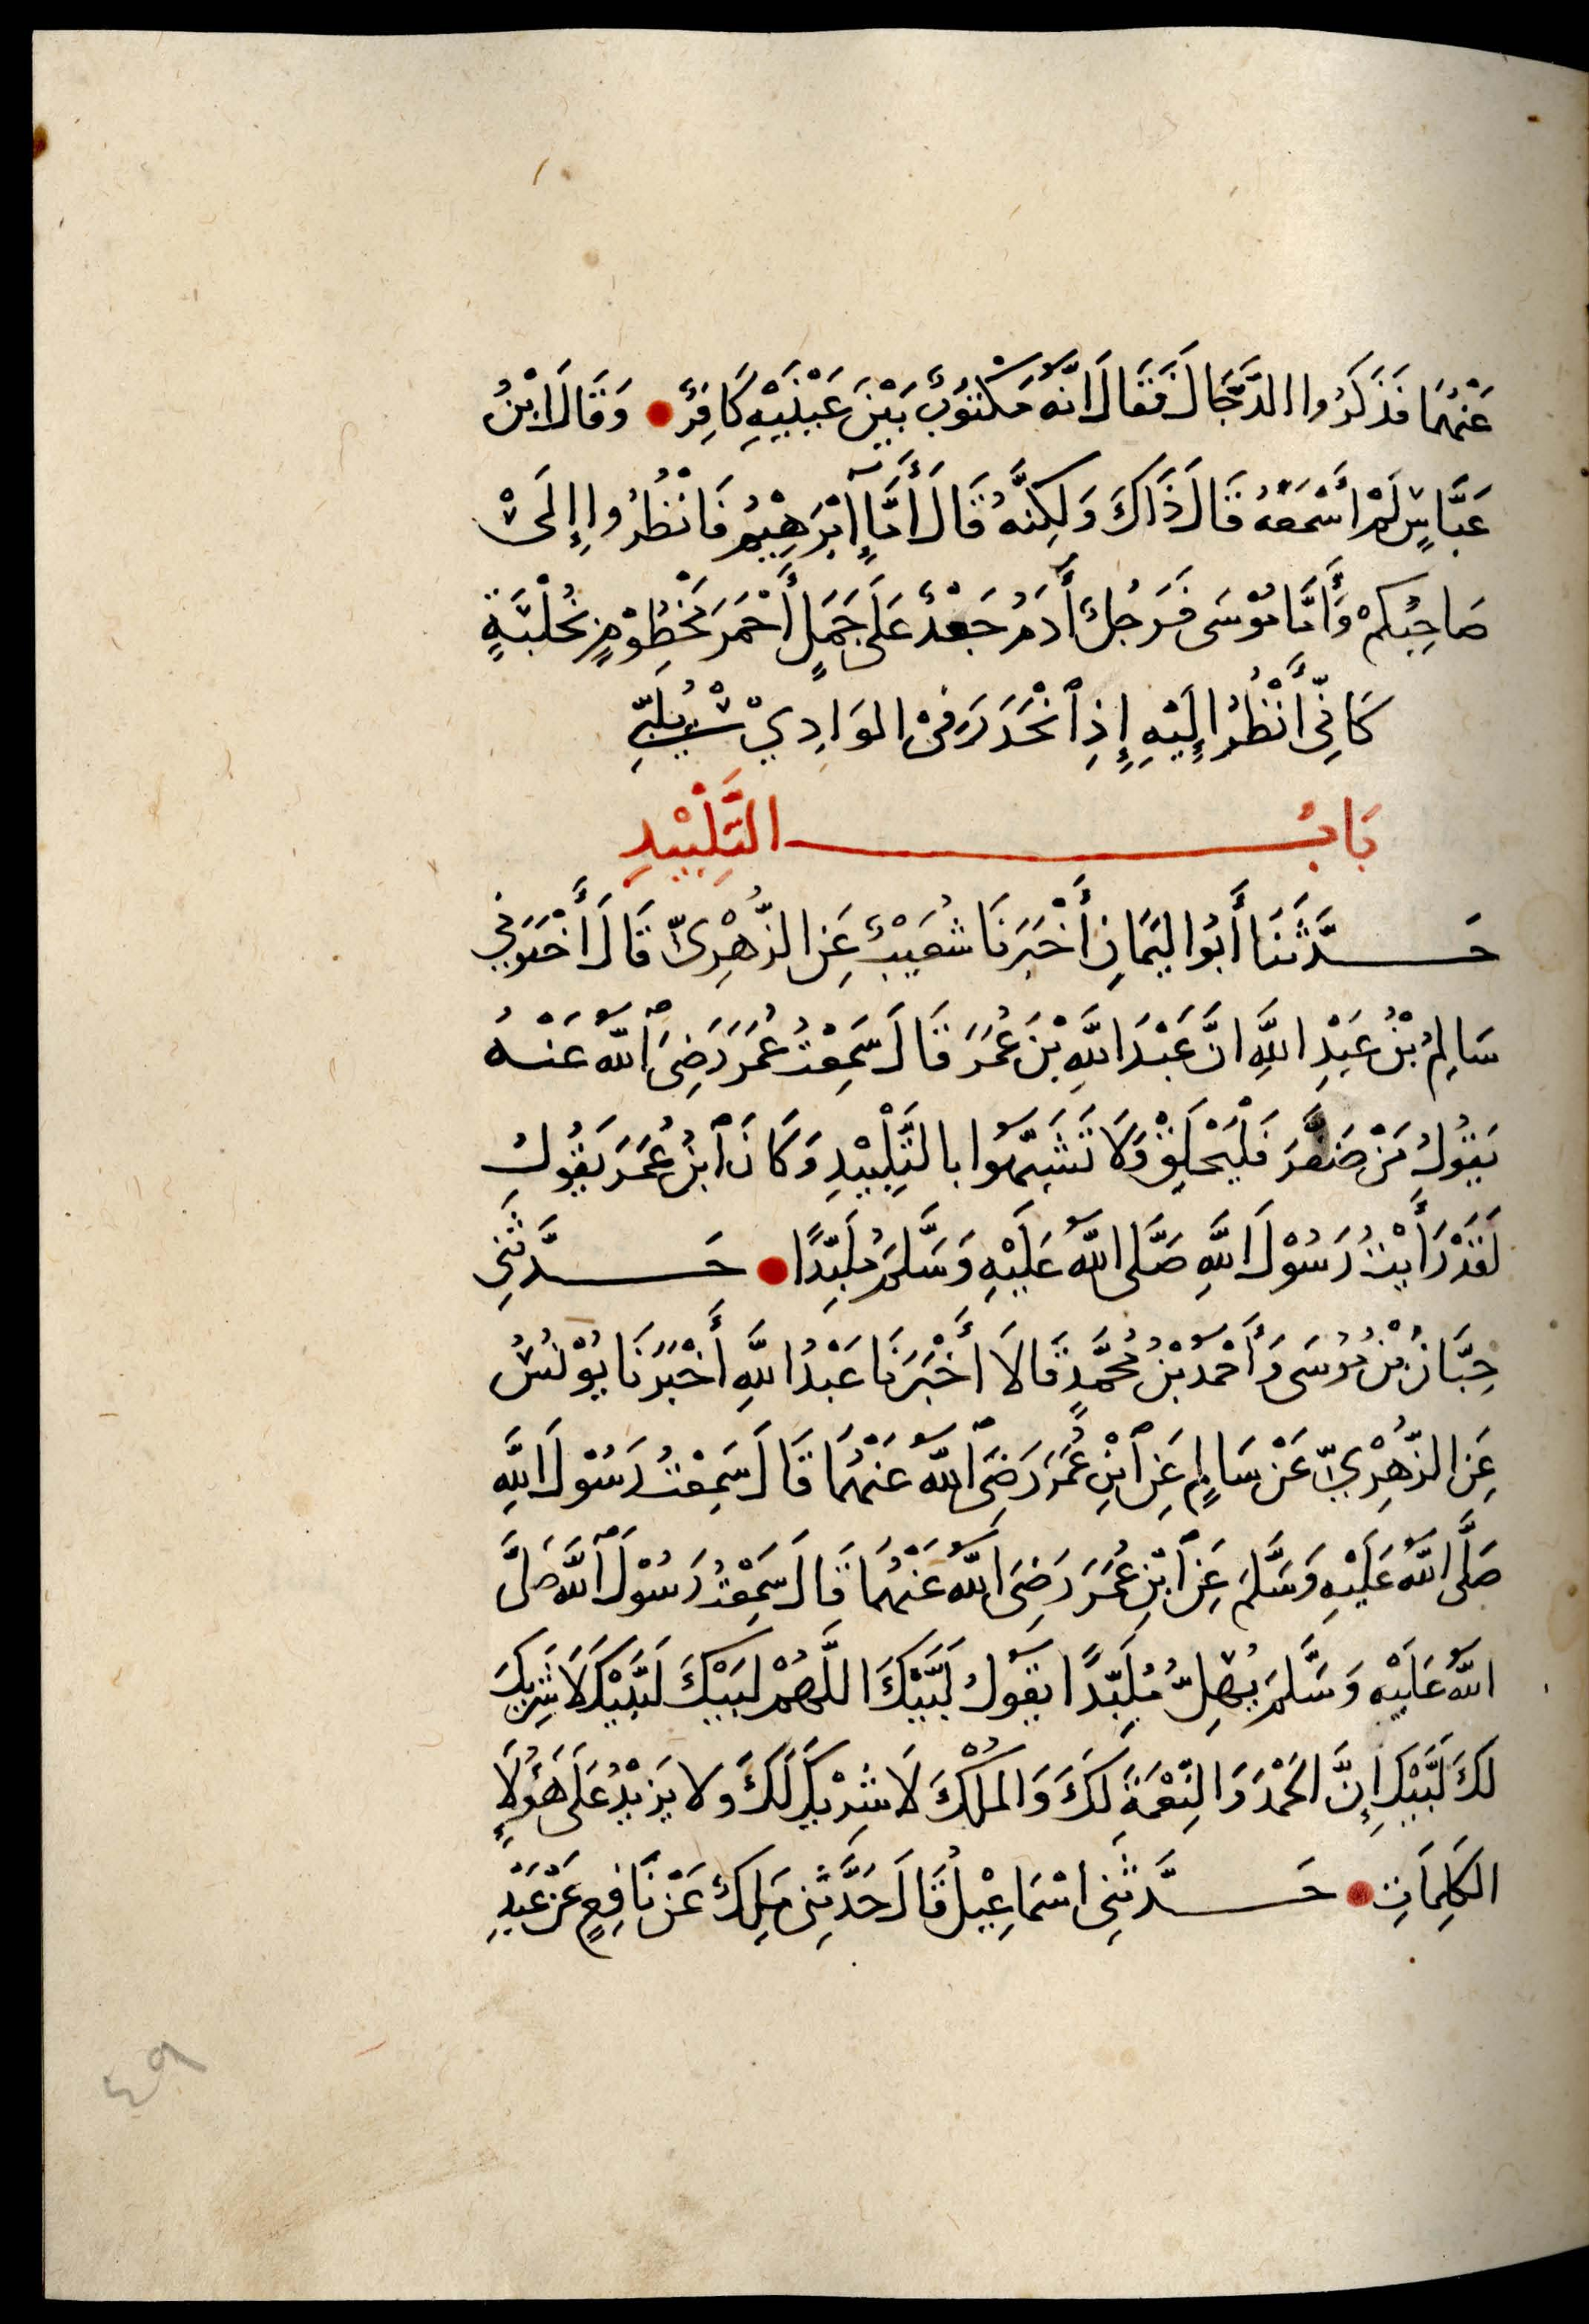 عَنْهُمَا فَذَكَرُوا الدَّجَّالَ فَقَالَ انَّهُ مَكْتُوْبٌ بَيْنَ عَيْنَيْهِ كَافِرٌ وَقَالَ ابْنُ
عَبَّاسٍ لَمْ أَسْمَعْهُ قَالَ ذَاكَ وَلَكِنَّهُ قَالَ أَمَّا إبْرَهِيْمُ فَانْظُرُوا إِلَى
صَاحِبِكُمْ وَأَمَّا مُوْسَى فَرَجُلٌ أَدَمُ جَعْدٌ عَلَى جَمَلٍ أَحْمَرَ مَخْطُوْمٍ بِخُلْبَةٍ
كَانِّي أَنْظُرُ إِلَيْهِ إِذِ ٱنْحَدَرَ فِي الوَادِيْ يُلَبِّي
بَابُ التَّلْبِيْدِ
حَدَّثَنَا أَبُوا ليَمَانِ أَخْبَرَنَا شُعَيْبٌ عَنِ الزُّهْرِيِّ قَالَ أَخْبَرَنِي
سَالِمُ بْنُ عَبْدِ اللَّهِ انَّ عَبْدَ اللَّهِ بْنَ عُمَرَ قَالَ سَمِعْتُ عُمَرَ رَضِيَ ٱللَّهُ عَنْهُ
يَقُولُ مَنْ ضَفَّرَ فَلْيَحْلِقْ وَلَا تَشَبَّهُوا بالتَّلْبِيْدِ وَكَانَ ٱبْنُ عُمَرَ يَقُولُ
لَقَدْ رَأَيْتُ رَسُوْلَ اللَّهِ صَلَّى اللَّهُ عَلَيْهِ وَسَلَّمَ مُلَبِّدًا حَدَّثَنِي
حِبَّانُ بْنُ مُوْسَى وَأَحْمَدُ بْنُ مُحَمَّدٍ قَالَا أَخْبَرَنَا عَبْدُ اللَّهِ أَخْبَرَنَا يُوْنُسُ
عَنِ الزُّهْرِيِّ عَنْ سَالِمٍ عَنِ ٱبْنِ عُمَرَ رَضِيَ ٱللَّهُ عَنْهُمَا قَالَ سَمِعْتُ رَسُوْلَ اللَّهِ
صَلَّى اللَّهُ عَلَيْهِ وَسَلَّمَ عَنِ ٱبْنِ عُمَرَ رَضِيَ اللَّهُ عَنْهُمَا قَالَ سَمِعْتُ رَسُوْلَ ٱللَّهِ صَلَّى
اللَّهُ عَلَيْهِ وَسَلَّمَ يُهِلُّ مُلَبِّدًا يَقُولُ لَبَّيْكَ اللَّهُمَّ لَبَيْكَ لَبَّيْكَ لَا شَرِيكَ
لَكَ لَبَّيْكَ إِنَّ الحَمْدَ وَالنِّعْمَةَ لَكَ وَالمُلْكَ لَا شَرِيْكَ لَكَ ولا يَزِيْدُ عَلَى هَؤُلَاءِ
الكَلِمَاتِ حَدَّثَنِي اسْمَاعِيْلُ قَالَ حَدَّثَنِي مَلِكٌ عَنْ نَافِعٍ عَنْ عَبْدِ
٤٩